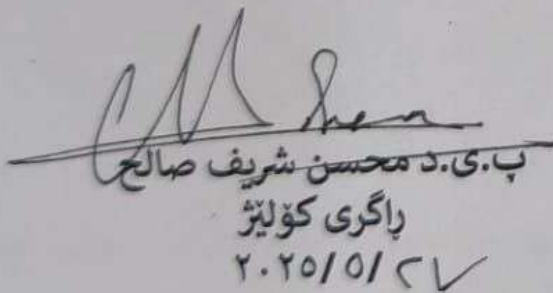 پ.ی.د محسن شریف صالح
ڕاگری کۆلێژ
٢٠٢٥/٥/٢٧